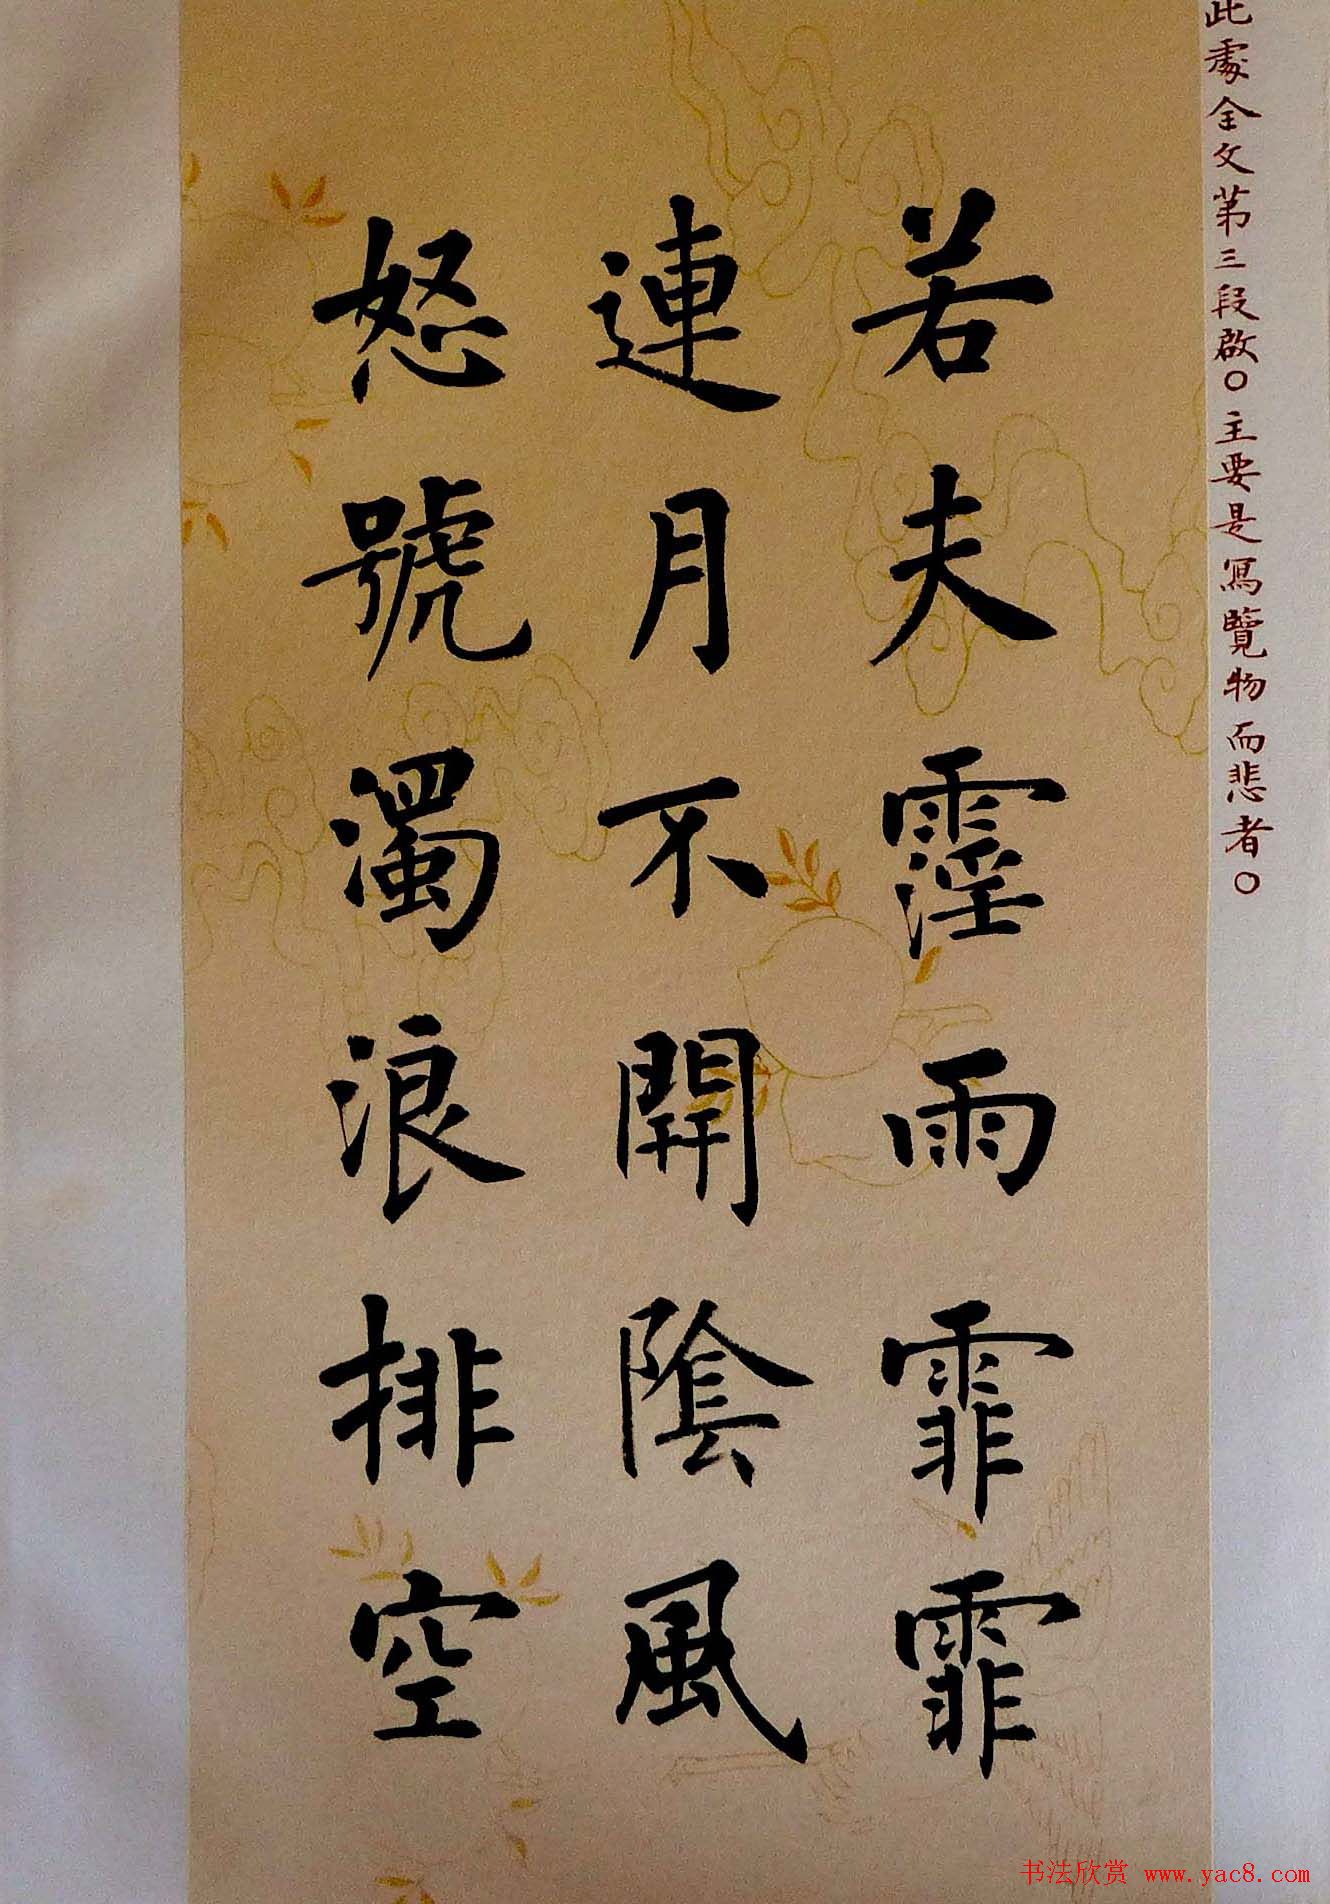 此處全文第三段啟○主要是寫覽物而悲者○
若夫霪雨霏霏
連月不開陰風
怒號濁浪排空
书法欣赏 www.yac8.com